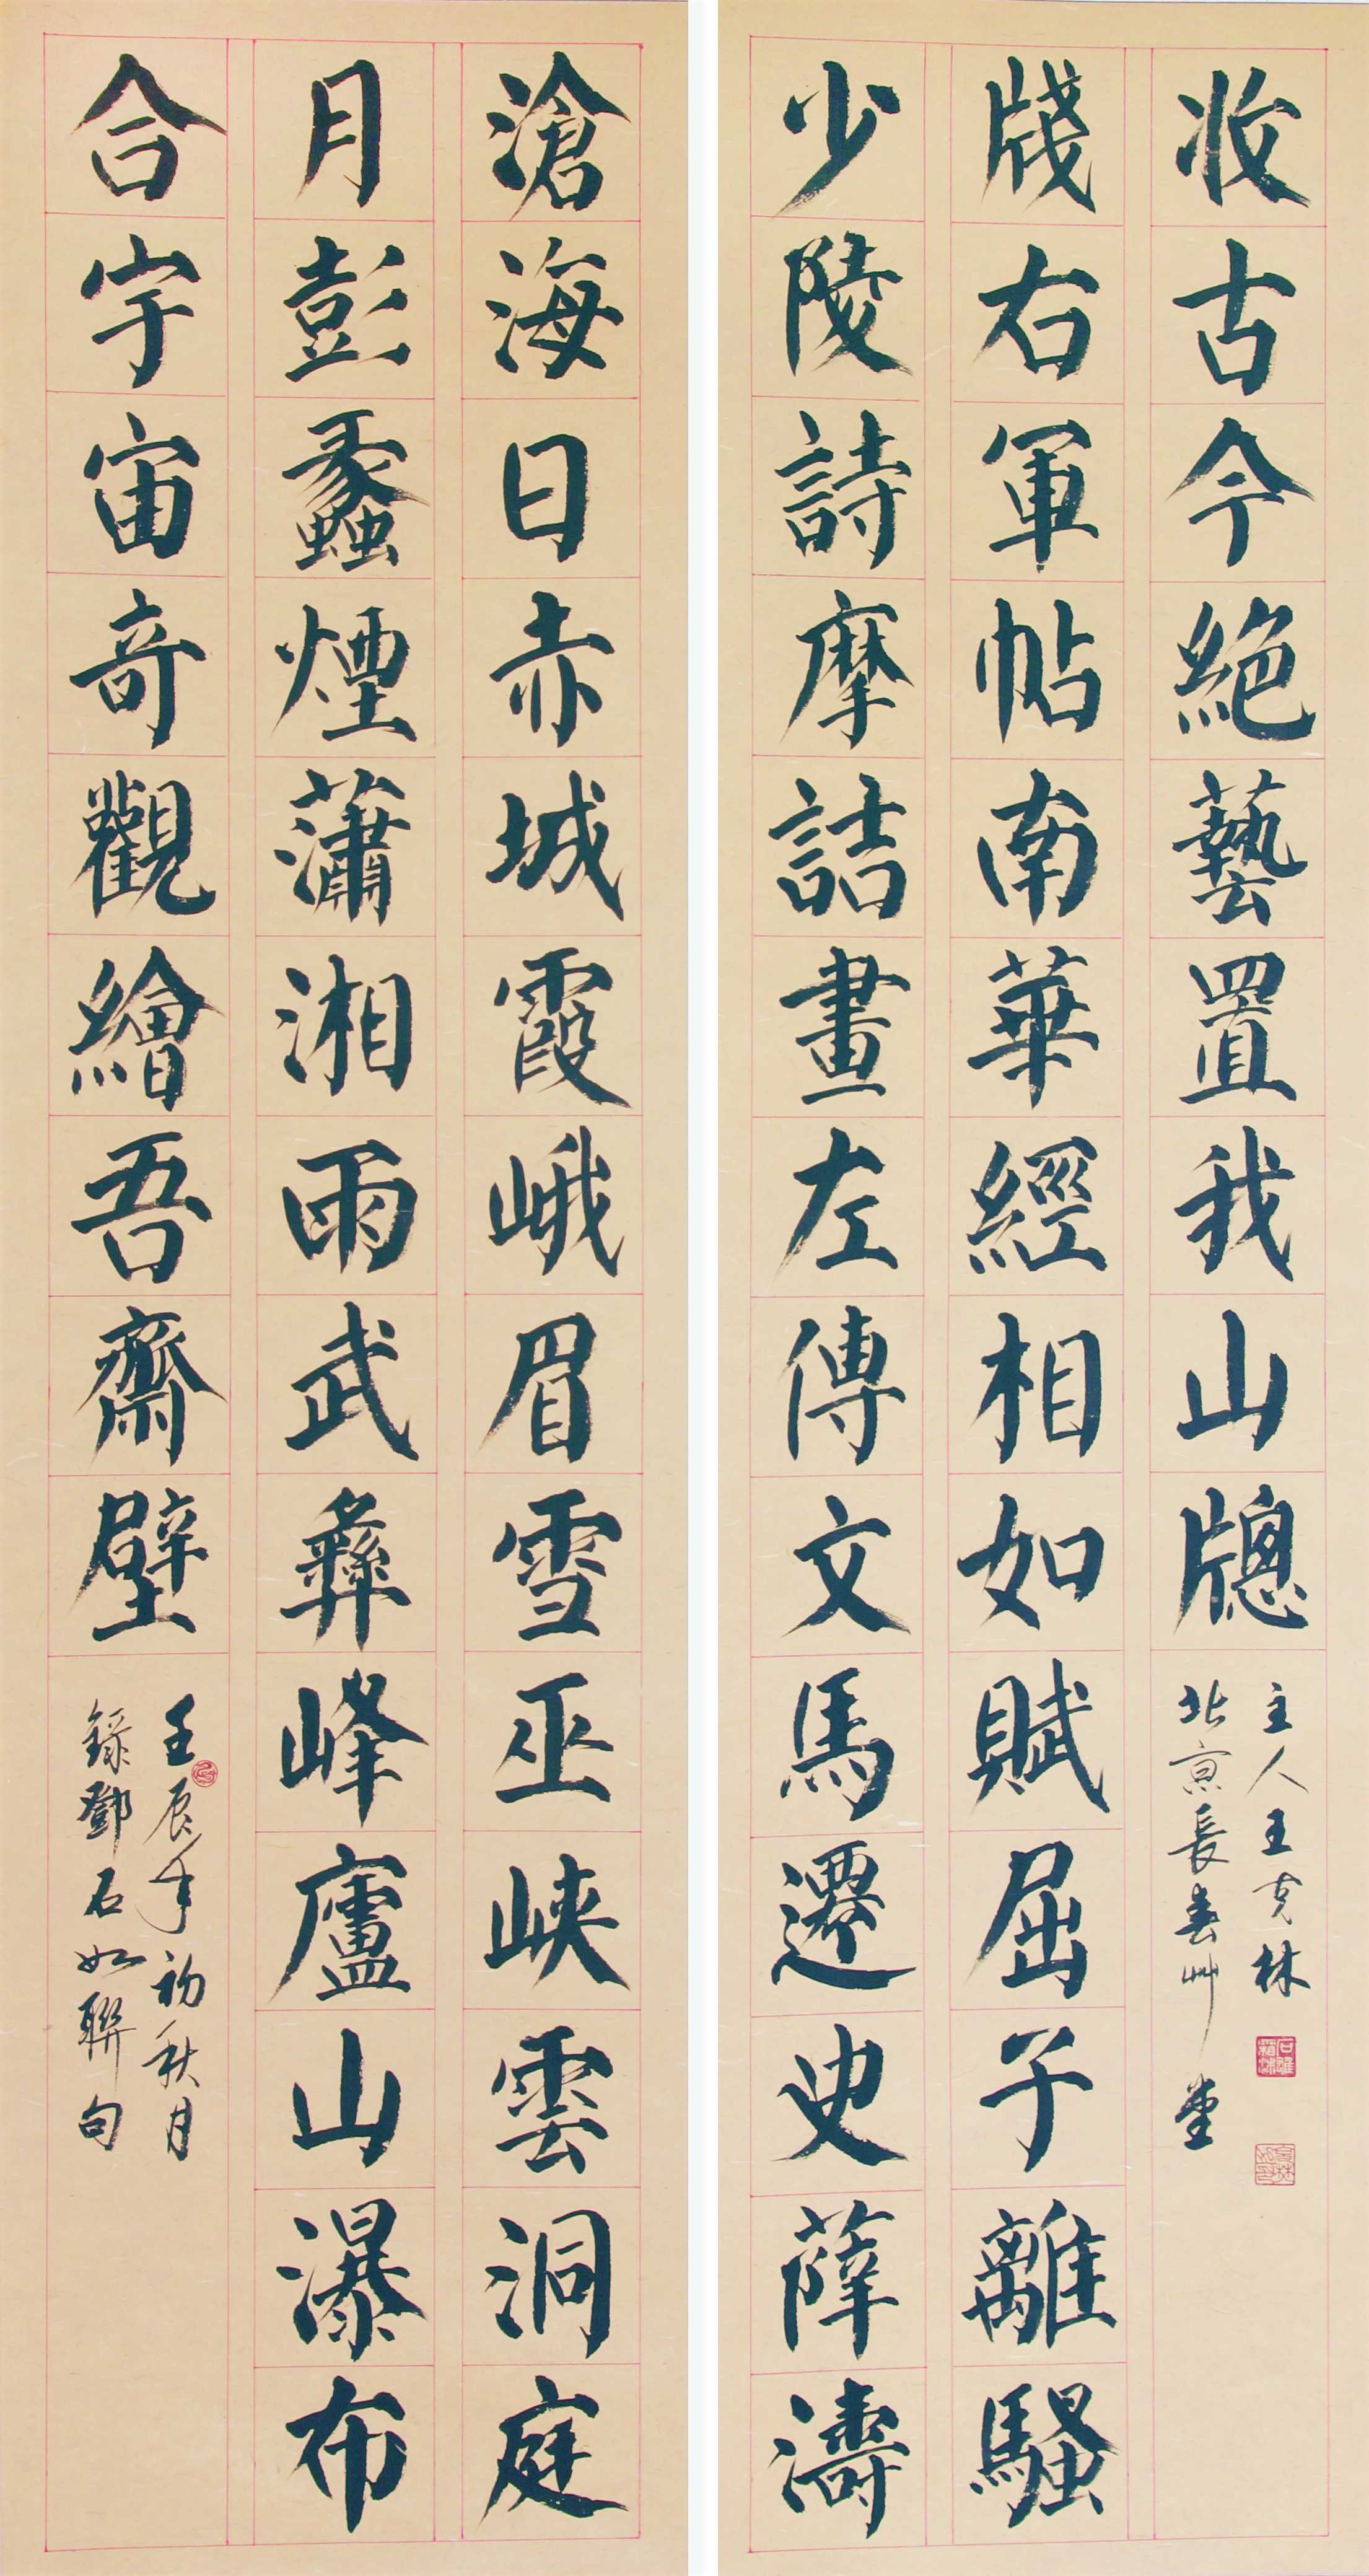 滄海日赤城霞峨眉雪巫峽雲洞庭
月彭蠡煙瀟湘雨武彝峰廬山瀑布
合宇宙奇觀繪吾齋壁
壬辰年初秋月
錄鄧石如聯句
少陵詩摩詰畫左傳文馬遷史薛濤
牋右軍帖南華經相如賦屈子離騷
收古今絕藝置我山牕
北京長春艸堂
主人王克林